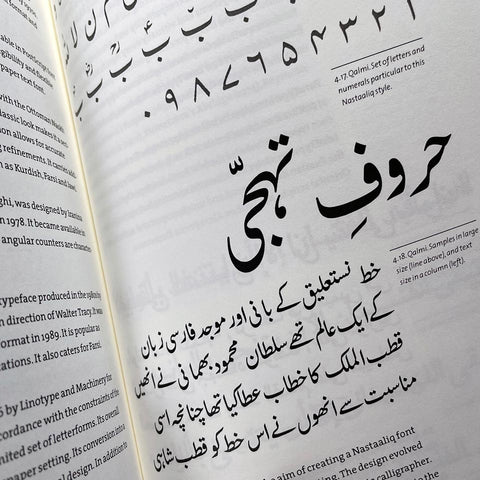 format and
able in PostScript
gibility and flexible
paper text font.
with the Ottoman Naskh
lassic look makes it a
on allows for accurate
g refinements. It carries
h as Kurdish, Farsi and Jawi.
ghi, was designed by
n 1978. It became available in
angular counters are character-
typeface produced in the 1980s by
n direction of Walter Tracy. It was
ormat in 1989. It is popular as
ations. It also caters for Farsi.
6 by Linotype and Machinery for
cordance with the constraints of the
mited set of letterforms. Its overall
paper setting. Its conversion into a
al design. In addition to
۰ ۹ ۸ ۷ ۶ ۵ ۴ ۳ ۲ ۱
4.17. Qalmi. Set of letters and
numerals particular to this
Nastaaliq style.
حروفِ تہجّی
4.18. Qalmi. Samples in large
size (line above), and text
size in a column (left).
خط نستعلیق کے بانی اور موجد فارسی زبان
کے ایک عالم تھے سلطان محمود بہمانی نے انھیں
قطب الملک کا خطاب عطا کیا تھا چنانچہ اسی
مناسبت سے انھوں نے اس خط کو قطب شاہی
he aim of creating a Nastaaliq font
setting. The design evolved
calligrapher.